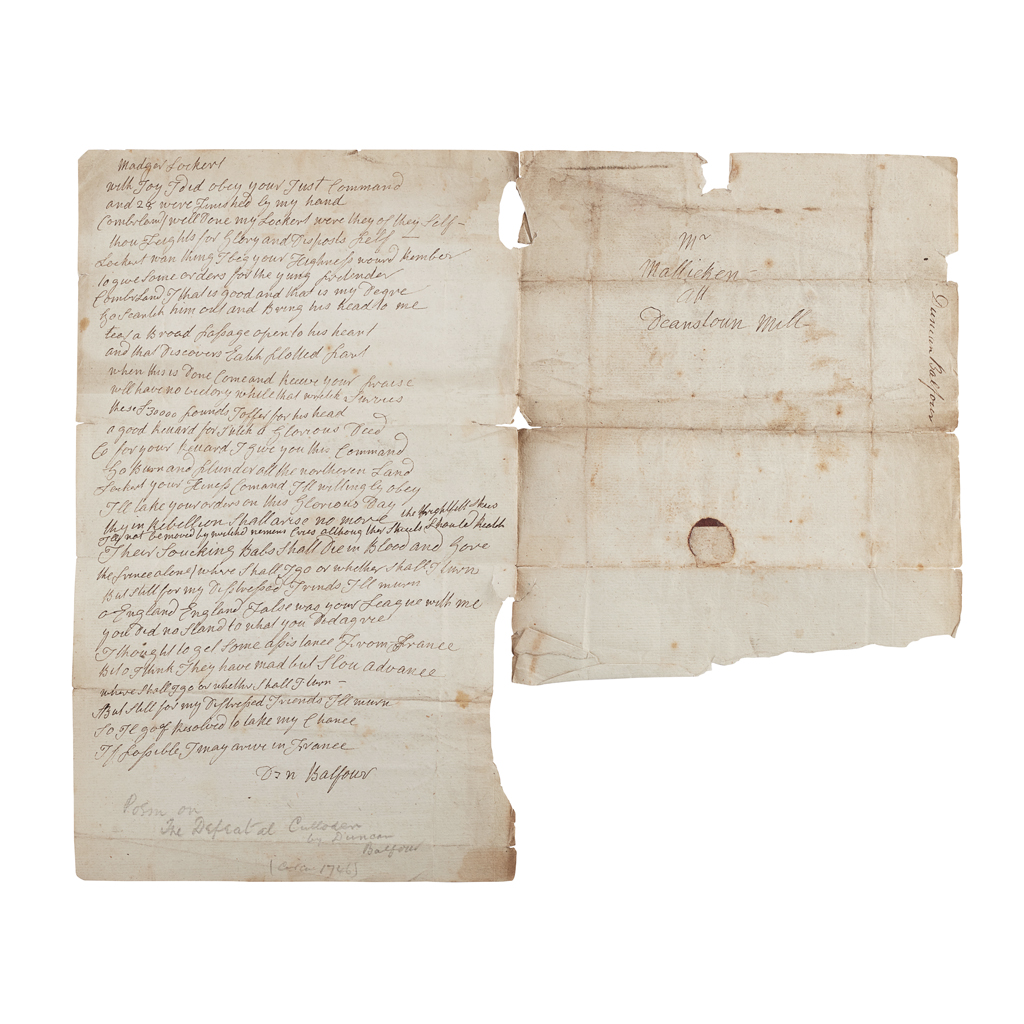 Madger Lockert
with Joy I did obey your Just Command
and 28 were finished by my hand
Combrlan) well Done my Lockert were they of they Self-
thou feights for Glory and Disposts pelf -
Lockert wan thing I beg your Highness woud Rember
to give some orders for the yung pretender
Combrland) that is good and that is my Degre
Go Search him out and Bring his head to me
tear a Broad passage open to his heart
and that Discovers Each plotted part
when this is Done Come and Receve your praise
will have no victory while that
these £30000 pounds I offer for his head
a good Reuard for Such a Glorious Deed
for your Reuard I give you this Command
Go Burn and plunder all the northeren Land
Lockert your Hiness Comand I'll willingly obey
I'll take your orders on this Glorious Day
they in Rebellion Shall arise no more
not be moved by wretched wemens Cries althoug ther Skreels Should Reatch the
Their Soucking Babs Shall Die in Blood and Gore
the prince alone) where Shall I go or whether shall I turn
But still for my Distressed Frinds I'll murn
o England England False was your League with me
you Did no Stand to what you Did agree
I thought to get Some assistance From France
But o I think They have mad but Slou advance
where Shall I go or whether Shall I turn -
But still for my Distressed Friends I'll murn
So I'l go Resolved to take my Chance
If possible I may arive in France
Dn Balfour
Poem on
The Defeat at Culloden
by Duncan
Balfour
(circa 1746)
Mr
Mallicken -
att
Deanstoun Mill-
Duncan Balfour